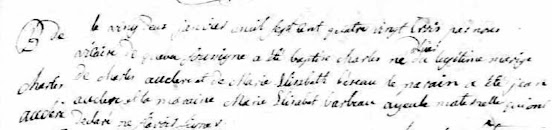 B de le vingt deux janvier mil sept cent quatre vingt trois par nous
vicaire de soussigné a été baptisé charles né d'hier du legitime mariage
Charles de charles auclere et de Marie Elisabeth Bereau le parain a été jean
auclere auclere et la maraine Marie Elisabet barbeau ayeule maternelle qui ont
declaré ne scavoir signer